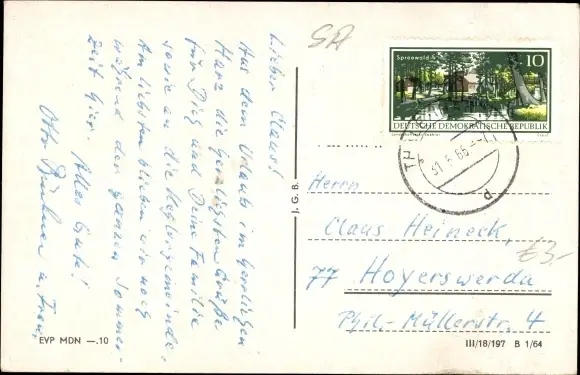 Lieber Claus!
Aus dem Urlaub im herrlichen
Harz die herzlichsten Grüße
für Dich und Deine Familie
sowie an die Keglergemeinde.
Am liebsten blieben wir noch
während der ganzen Sommer-
zeit hier. Alles Gute!
Otto u. Frau.
EVP MDN —.10
J. G. B.
Spreewald
10
DEUTSCHE DEMOKRATISCHE REPUBLIK
TH
31.5.66
Herrn
Claus Heineck,
£3-
77 Hoyerswerda
Phil.-Müllerstr. 4
III/18/197 B 1/64